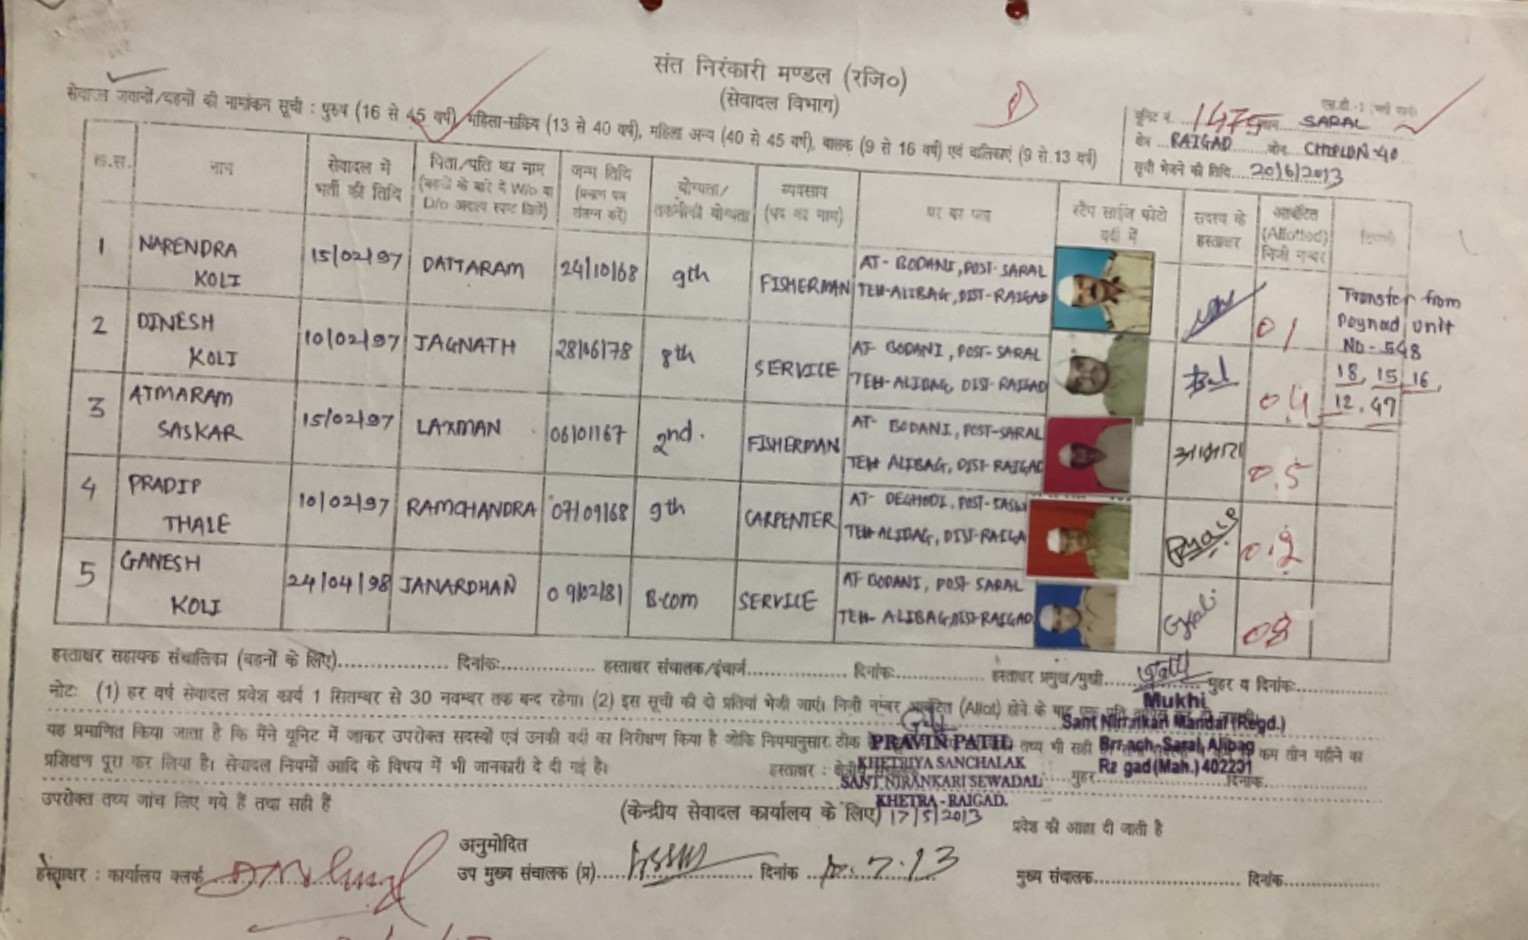 संत निरंकारी मण्डल (रजि०)
(सेवादल विभाग)
सेवादल जवानों/बहनों की नामांकन सूची : पुरुष (16 से 45 वर्ष) महिला-सक्रिय (13 से 40 वर्ष), महिला अन्य (40 से 45 वर्ष), बालक (9 से 16 वर्ष) एवं बालिकाएं (9 से 13 वर्ष)
यूनिट नं. 1475 SARAL
RAIGAD CHIPLON-40
सूची भेजने की तिथि 20/6/2013
क्र.स. नाम सेवादल में भर्ती की तिथि पिता/पति का नाम (बहनों के बारे में W/o या D/o अवश्य स्पष्ट लिखें) जन्म तिथि (प्रमाण पत्र संलग्न करें) योग्यता/तकनीकी योग्यता व्यवसाय (पद का नाम) घर का पता स्टैंप साईज फोटो वर्दी में सदस्य के हस्ताक्षर आबंटित (Allotted) निजी नम्बर
1 NARENDRA KOLI 15/02/97 DATTARAM 24/10/68 9th FISHERMAN AT- BODANI, POST- SARAL TEH-ALIBAG, DIST-RAIGAD 01
Transfer from Poynad unit No-548
18, 15, 16,
12, 47
2 DINESH KOLI 10/02/97 JAGNATH 28/06/78 8th SERVICE AT- BODANI, POST-SARAL TEH-ALIBAG, DIST-RAIGAD 04
3 ATMARAM SASKAR 15/02/97 LAXMAN 06/01/67 2nd. FISHERMAN AT- BODANI, POST-SARAL TEH ALIBAG, DIST-RAIGAD 05
4 PRADIP THALE 10/02/97 RAMCHANDRA 07/09/68 9th CARPENTER AT- DEGHODI, POST- TEH-ALIBAG, DIST-RAIGA
5 GANESH KOLI 24/04/98 JANARDHAN 09/02/81 B.com SERVICE AT BODANI, POST- SARAL TEH- ALIBAG, DIST-RAIGAD 08
हस्ताक्षर सहायक संचालिका (बहनों के लिए) दिनांक: हस्ताक्षर संचालक/इंचार्ज दिनांक: हस्ताक्षर प्रमुख/मुखी मुहर व दिनांक:
नोट: (1) हर वर्ष सेवादल प्रवेश कार्य 1 सितम्बर से 30 नवम्बर तक बन्द रहेगा। (2) इस सूची की दो प्रतियां भेजी जाएं। निजी नम्बर आबंटित (Allot) होने के बाद एक प्रति
Mukhi
Sant Nirankari Mandal (Regd.)
Branch, Saral, Alibag
Raigad (Mah.) 402201
यह प्रमाणित किया जाता है कि मैंने यूनिट में जाकर उपरोक्त सदस्यों एवं उनकी वर्दी का निरीक्षण किया है जोकि नियमानुसार ठीक तथ्य भी सही कम तीन महीने का
प्रशिक्षण पूरा कर लिया है। सेवादल नियमों आदि के विषय में भी जानकारी दे दी गई है।
हस्ताक्षर : मुहर दिनांक
PRAVIN PATIL
KHETRIYA SANCHALAK
SANT NIRANKARI SEWADAL
KHETRA - RAIGAD.
17/5/2013
उपरोक्त तथ्य जांच लिए गये हैं तथा सही हैं
(केन्द्रीय सेवादल कार्यालय के लिए)
प्रवेश की आज्ञा दी जाती है
अनुमोदित
हस्ताक्षर : कार्यालय क्लर्क उप मुख्य संचालक (प्र) दिनांक 7.13 मुख्य संचालक दिनांक